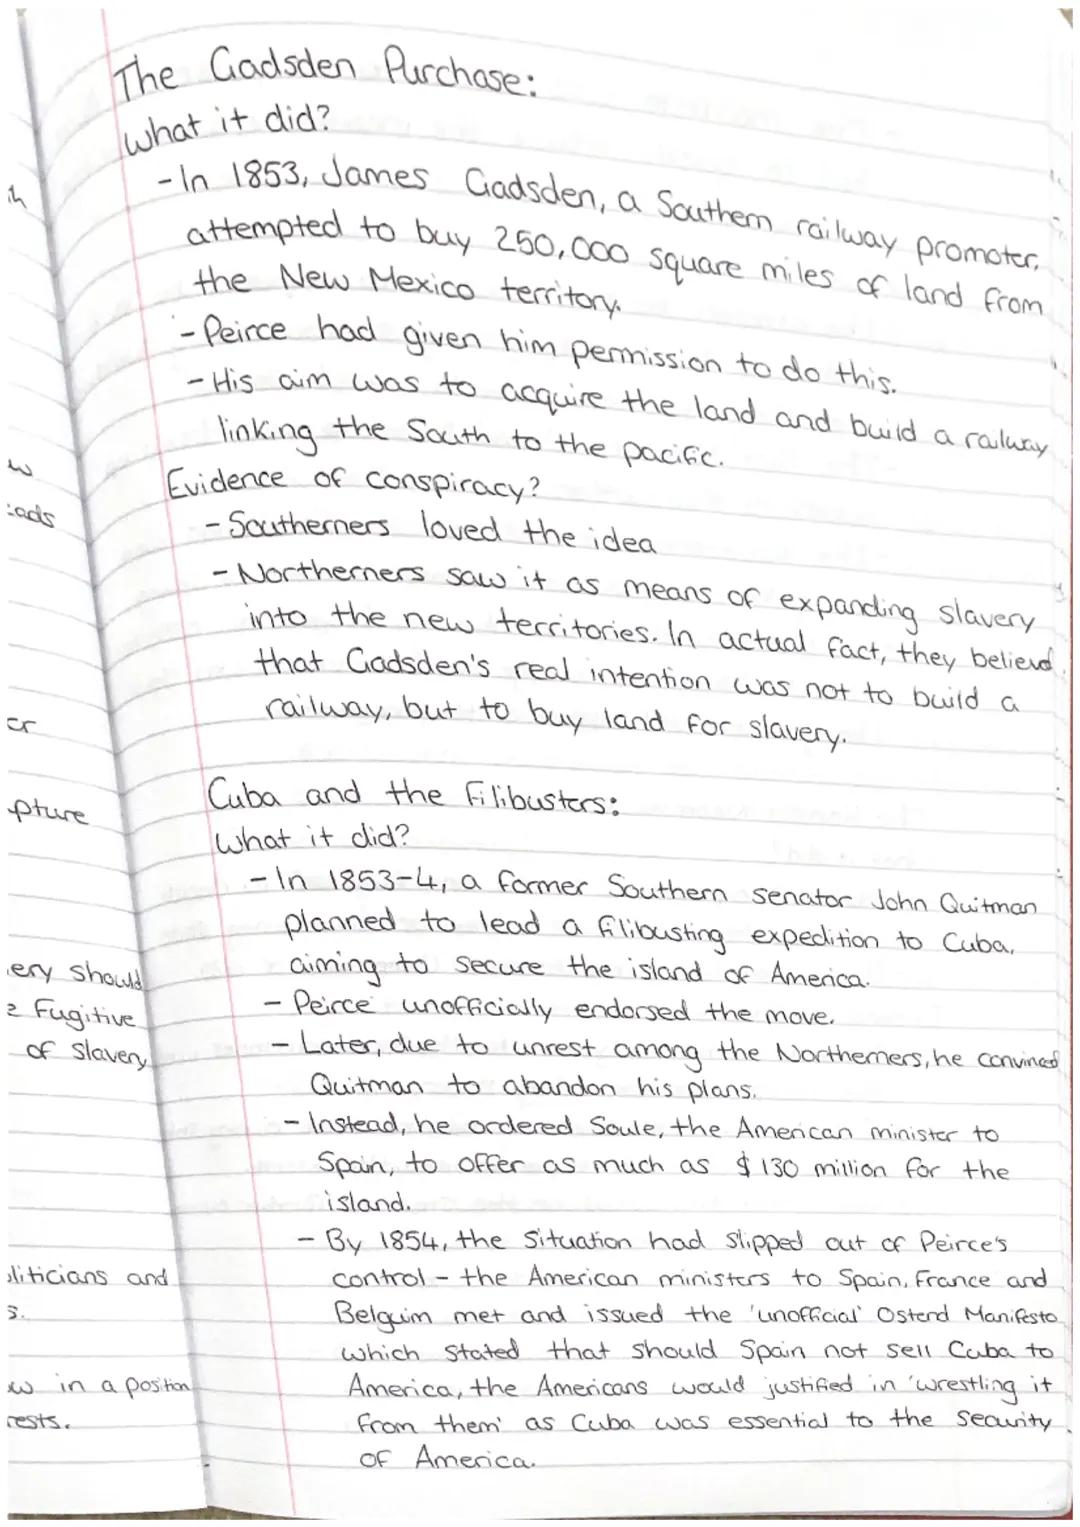 The Gadsden Purchase:
What it did?
- In 1853, James Gadsden, a Southern railway promoter,
attempted to buy 250,000 square miles of land from
the New Mexico territory.
- Peirce had given him permission to do this.
- His aim was to acquire the land and build a railway
linking the South to the pacific.
Evidence of conspiracy?
- Southerners loved the idea
- Northerners saw it as means of expanding slavery
into the new territories. In actual fact, they believd
that Gadsden's real intention was not to build a
railway, but to buy land for slavery.
Cuba and the Filibusters:
What it did?
- In 1853-4, a former Southern senator John Quitman
planned to lead a filibusting expedition to Cuba,
aiming to secure the island of America.
- Peirce unofficially endorsed the move.
- Later, due to unrest among the Northerners, he convined
Quitman to abandon his plans.
- Instead, he ordered Soule, the American minister to
Spain, to offer as much as $130 million for the
island.
- By 1854, the situation had slipped out of Peirce's
control - the American ministers to Spain, France and
Belguim met and issued the 'unofficial' Ostend Manifesto
which stated that should Spain not sell Cuba to
America, the Americans would justified in 'wrestling it
from them' as Cuba was essential to the security
of America.
eads
er
pture
ery should
e Fugitive
of slavery
oliticians and
s.
ow in a position
rests.